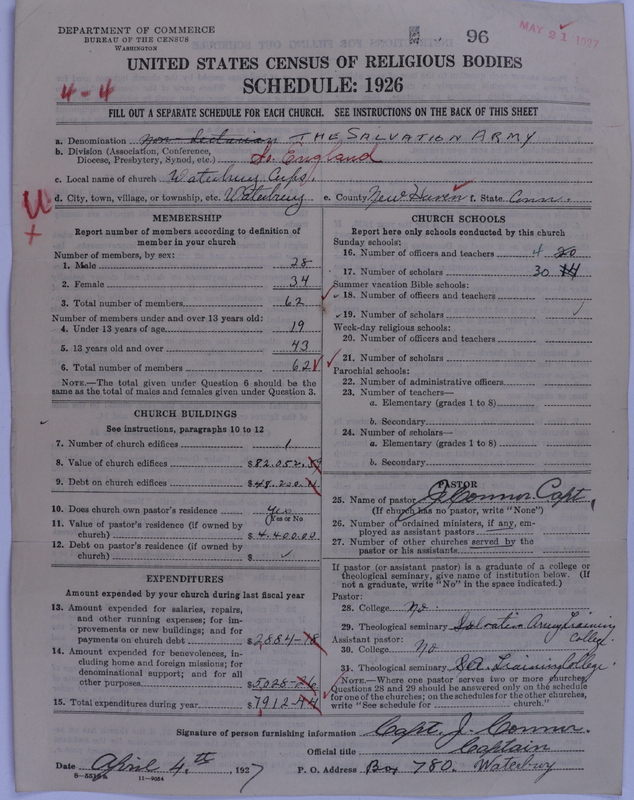 DEPARTMENT OF COMMERCE
BUREAU OF THE CENSUS
WASHINGTON
96
MAY 21 1927
UNITED STATES CENSUS OF RELIGIOUS BODIES
4-4
SCHEDULE: 1926
FILL OUT A SEPARATE SCHEDULE FOR EACH CHURCH. SEE INSTRUCTIONS ON THE BACK OF THIS SHEET
a. Denomination non-Sectarian THE SALVATION ARMY
b. Division (Association, Conference,
Diocese, Presbytery, Synod, etc.) So. England
c. Local name of church Waterbury Corps.
d. City, town, village, or township, etc. Waterbury e. County New Haven f. State Conn.
MEMBERSHIP
Report number of members according to definition of
member in your church
Number of members, by sex:
1. Male 28
2. Female 34
3. Total number of members 62
Number of members under and over 13 years old:
4. Under 13 years of age 19
5. 13 years old and over 43
6. Total number of members 62
NOTE.—The total given under Question 6 should be
same as the total of males and females given under Question 3.
CHURCH BUILDINGS
See instructions, paragraphs 10 to 12
7. Number of church edifices 1
8. Value of church edifices $82.052.
9. Debt on church edifices $48.200.
10. Does church own pastor's residence? Yes
Yes or No
11. Value of pastor's residence (if owned by
church) $4.400.00
12. Debt on pastor's residence (if owned by
church) $
EXPENDITURES
Amount expended by your church during last fiscal year
13. Amount expended for salaries, repairs,
and other running expenses; for im-
provements or new buildings; and for
payments on church debt $2884-18
14. Amount expended for benevolences, in-
cluding home and foreign missions; for
denominational support; and for all
other purposes $5028-26
15. Total expenditures during year $7912-44
CHURCH SCHOOLS
Report here only schools conducted by this church
Sunday schools:
16. Number of officers and teachers 4 20
17. Number of scholars 30 14
Summer vacation Bible schools:
18. Number of officers and teachers
19. Number of scholars
Week-day religious schools:
20. Number of officers and teachers
21. Number of scholars
Parochial schools:
22. Number of administrative officers
23. Number of teachers—
a. Elementary (grades 1 to 8)
b. Secondary
24. Number of scholars—
a. Elementary (grades 1 to 8)
b. Secondary
PASTOR
25. Name of pastor J Connor Capt.
(If church has no pastor, write "None")
26. Number of ordained ministers, if any, em-
ployed as assistant pastors
27. Number of other churches served by the
pastor or his assistants
If pastor (or assistant pastor) is a graduate of a college or
theological seminary, give name of institution below. (If
not a graduate, write "No" in the space indicated.)
Pastor:
28. College No
29. Theological seminary Salvation Army Training
College.
Assistant pastor:
30. College No
31. Theological seminary S.A. Training College.
NOTE.—Where one pastor serves two or more churches,
Questions 28 and 29 should be answered only on the schedule
for one of the churches; on the schedules for the other churches,
write "See schedule for church."
Signature of person furnishing information Capt. J. Connor.
Official title Captain
Date April 4th 1927 P. O. Address Box 780. Waterbury
11-9054